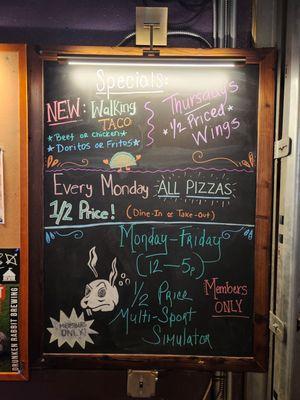 Specials:
NEW: Walking
TACO
*Beef or Chicken*
*Doritos or Fritos*
Thursdays
*1/2 Priced*
Wings
Every Monday ALL PIZZAS
1/2 Price! (Dine-In or Take-Out)
Monday-Friday
(12-5p)
1/2 Price
Multi-Sport
Simulator
Members
ONLY
MEMBERS
ONLY!
DRUNKEN RABBIT BREWING